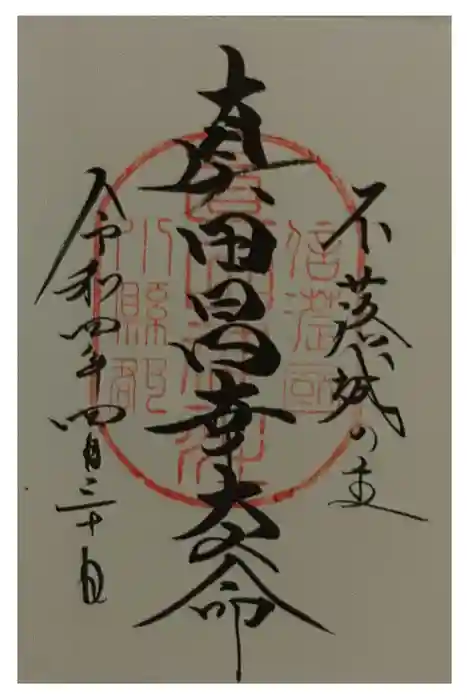 不落城の主
真田昌幸大人命
令和四年四月三十日
信濃國
小縣郡